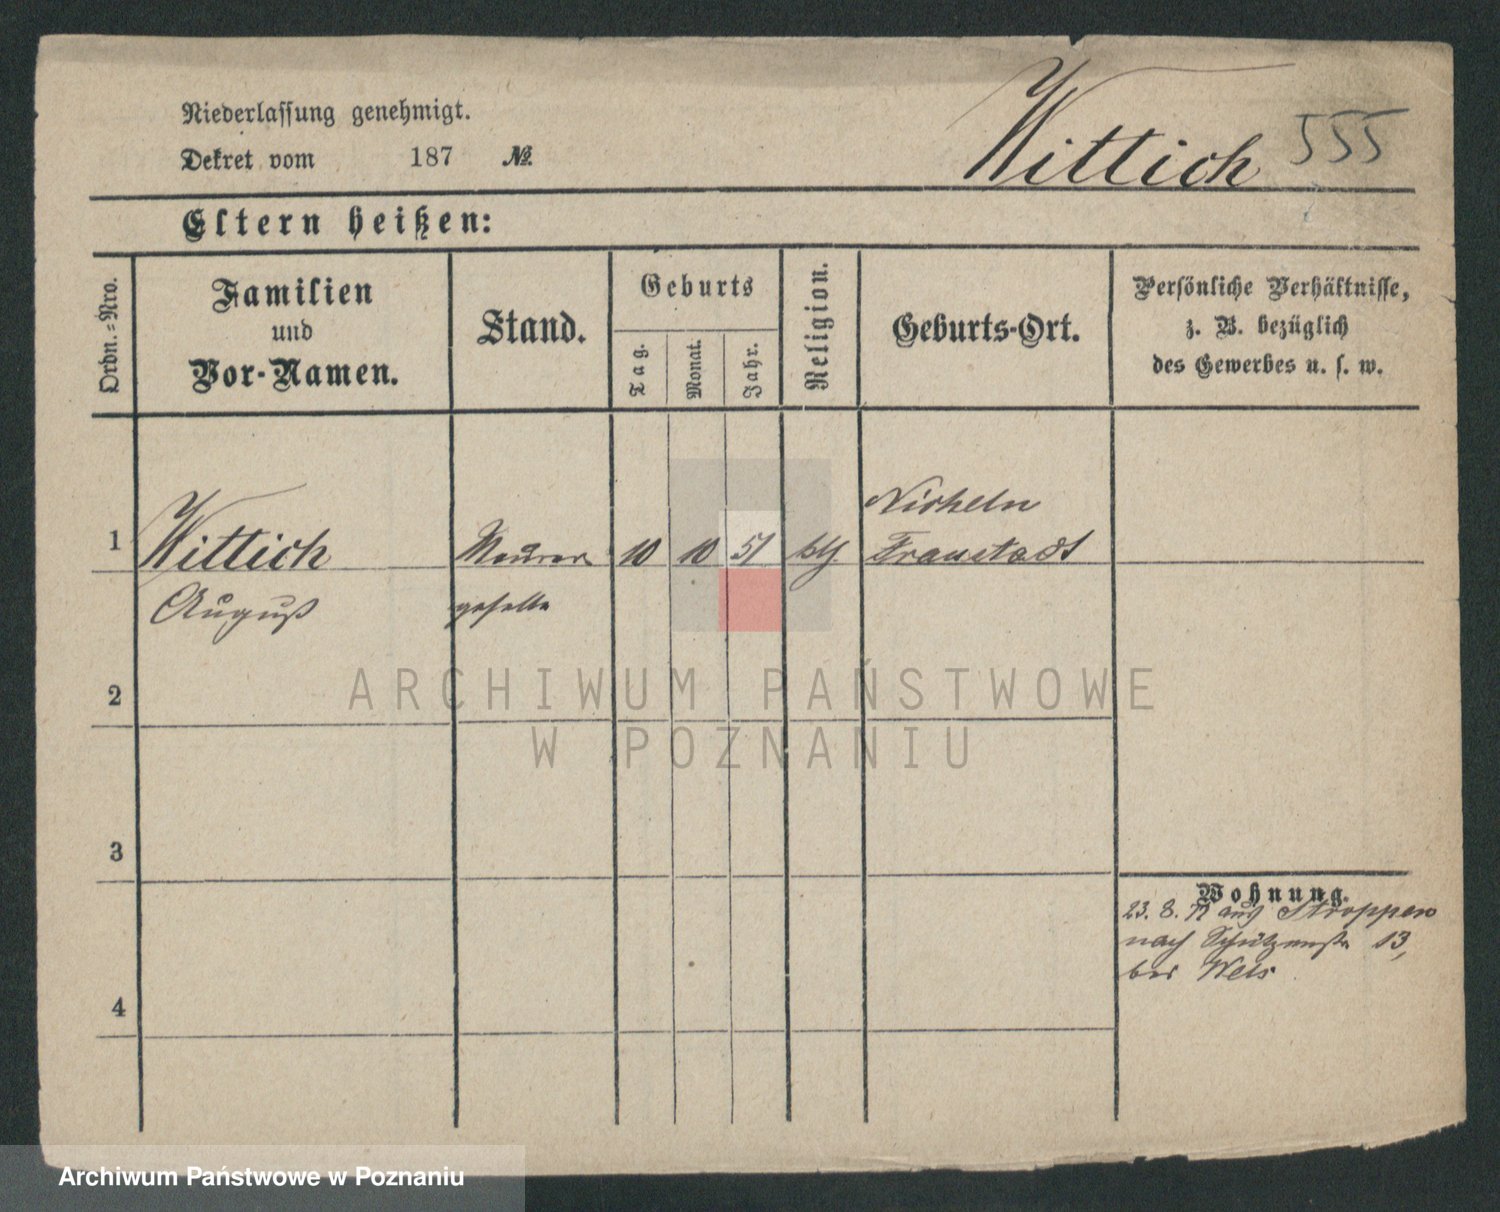 Niederlassung genehmigt.
Dekret vom 187 №.
Wittich 555
Eltern heißen:
Ordn.-Nro.
Familien
und
Vor-Namen.
Stand.
Geburts
Tag.
Monat.
Jahr.
Religion.
Geburts-Ort.
Persönliche Verhältnisse,
z. B. bezüglich
des Gewerbes u. s. w.
Nicheln
1 Wittich Maurer 10 10 51 kth. Fraustadt
August geselle
ARCHIWUM PAŃSTWOWE
W POZNANIU
2
3
4
Wohnung.
23. 8. 77 aus Stroppen
nach Schützenstr 13,
bei Weis
Archiwum Państwowe w Poznaniu